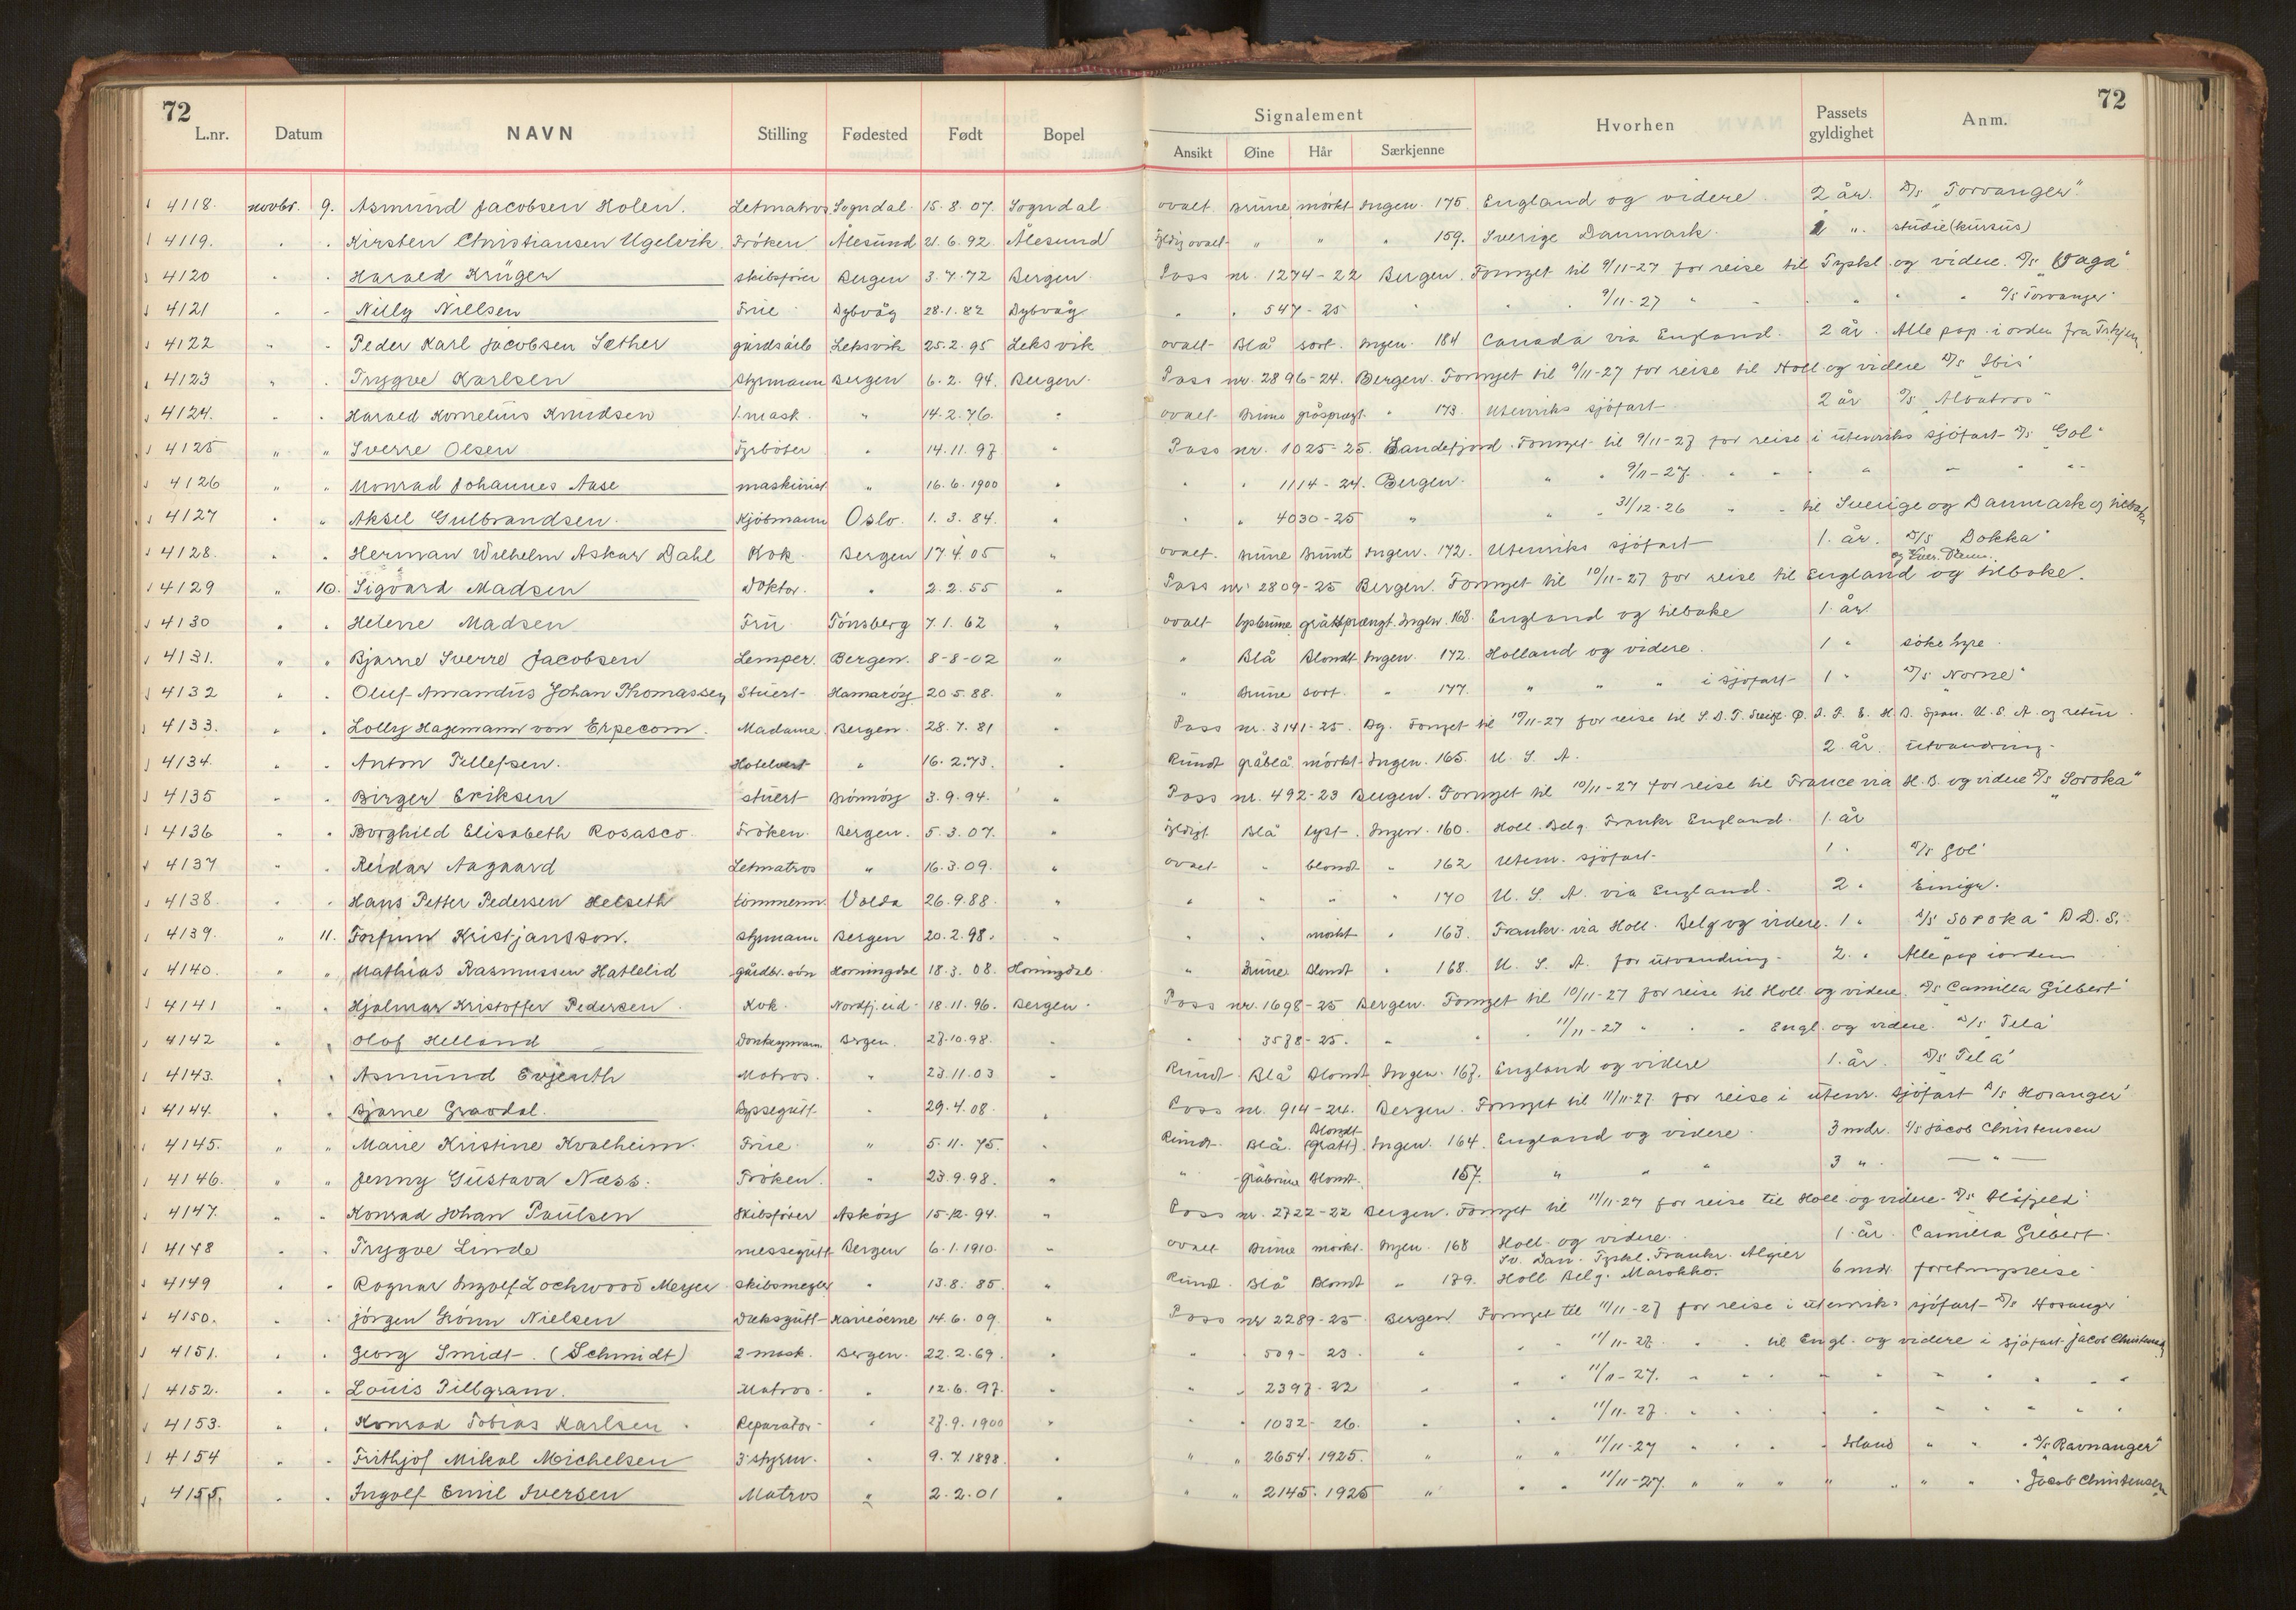 72
72
L.nr. Datum NAVN Stilling Fødested Født Bopel Signalement Ansikt Øine Hår Særkjenne Hvorhen Passets gyldighet Anm.
4118. novbr. 9. Asmund Jacobsen Holen. Letmatros Sogndal 15.8.07. Sogndal ovalt brune mørkt Ingen. 175. England og videre 2 år. D/S "Torvanger"
4119. " " Kirsten Christiansen Ugelvik. Frøken Ålesund 21.6.92 Ålesund ovalt " " " 159. Sverige Danmark. " studie (kursus)
4120 " " Harald Krüger skibsfører Bergen 3.7.72 Bergen Pass nr. 1274-22 Bergen. Fornyet til 9/11-27 for reise til Tyskl. og videre. D/S "Vaga"
4121 " " Nilly Nielsen Frue Dybvåg 28.1.82 Dybvåg " " 547-25 " " " 9/11-27 " " " " " D/S Torvanger
4122 " " Peder Karl Jacobsen Sæther gårdsarb Leksvik 25.2.95 Leksvik ovalt Blå sort. Ingen. 184 Canada via England. 2 år. Alle pap. i orden fra Trhjem.
4123 " " Trygve Karlsen Styrmann Bergen 6.2.94. Bergen. Pass nr. 2896-24. Bergen. Fornyet til 9/11-27 for reise til Holl. og videre D/S "Ibis"
4124. " " Harald Kornelius Knudsen 1. mask. " 14.2.76. " ovalt brune gråsprægt. " 173. Utenriks sjøfart 2 år D/S "Albatros"
4125 " " Sverre Olsen Fyrbøter " 14.11.97 " Pass nr. 1025-25. Sandefjord. Fornyet til 9/11-27 for reise i utenriks sjøfart D/S "Gol"
4126 " " Monrad Johannes Aase maskinist " 16.6.1900 " " " 1114-24. Bergen. " " 9/11-27. " " " " " "
4127 " " Aksel Gulbrandsen. Kjøbmann Oslo. 1.3.84. " " " 4030-25 " " " 31/12-26 " " til Sverige og Danmark og tilbake
4128. " " Herman Wilhelm Askar Dahl Kok. Bergen 17.4.05 " ovalt. brune brunt Ingen. 172. Utenriks sjøfart 1. år. D/S "Dokka"
4129 " 10. Sigvard Madsen Doktor. " 2.2.55 " Pass nr. 2809-25 Bergen. Fornyet til 10/11-27 for reise til England og tilbake.
4130 " " Helene Madsen Fru Tønsberg 7.1.62 " ovalt lysbrune gråttsprængt. Ingen. 168. England og tilbake 1. år.
4131. " " Bjarne Sverre Jacobsen Lemper. Bergen. 8-8-02 " " Blå Blondt Ingen. 172. Holland og videre. 1 " søke hyre.
4132 " " Oluf Amandus Johan Thomassen Stuert Hamarøy 20.5.88. " " brune sort. " 177. " " " i sjøfart 1 " D/S "Norne"
4133. " " Lolly Hagemann von Erpecom. Madame. Bergen. 28.7.81 " Pass nr. 3141-25. Bg. Fornyet til 10/11-27 for reise til S. D. T. Sveitz. Ø. I. F. E. H B. Span. U. S. A. og retur.
4134. " " Anton Tellefsen. Hotelvert " 16.2.73. " Rundt gråblå mørkt Ingen. 165. U. S. A. 2 år. utvandring.
4135 " " Birger Eriksen stuert Brønnøy 3.9.94. " Pass nr. 492-23 Bergen. Fornyet til 10/11-27 for reise til France via H. B. og videre D/S "Soroka"
4136 " " Borghild Elisabeth Rosasco. Frøken. Bergen. 5.3.07. " Blå lyst. Ingen. 160. Holl. Belg. Frankr England. 1. år
4137 " " Reidar Aagaard Letmatros " 16.3.09. " ovalt " blondt " 162 Utenr. sjøfart. 1 " D/S "Gol"
4138. " " Hans Petter Pedersen Helseth tømmerm. Volda 26.9.88. " " " " " 170 U. S. A. via England. 2 " Emigr.
4139. " 11. Torfinn Kristjansson. styrmann Bergen 20.2.98. " " " mørkt " 163. Frankr. via Holl. Belg og videre. 1 " D/S "Soroka" B.D.S.
4140. " " Mathias Rasmussen Hatlelid gårdbr. søn Horningdal 18.3.08. Horningdal. " brune blondt " 168. U. S. A. for utvandring. 2. " Alle pap iorden
4141 " " Hjalmar Kristoffer Pedersen. Kok. Nordfj.eid. 18.11.96. Bergen. Pass nr. 1698-25 Bergen. Fornyet til 10/11-27 for reise til Holl og videre. D/S "Camilla Gilbert"
4142 " " Olaf Helland Donkeymann. Bergen. 27.10.98. " " " 3578-25. " " " 11/11-27 " " " Engl. og videre. D/S "Tela"
4143. " " Asmund Evjenth Matros. " 23.11.03 " Rundt Blå Blondt Ingen. 167. England og videre 1. år. D/S "Tela"
4144. " " Bjarne Gravdal. Byssegutt " 29.4.08. " Pass nr. 914-24. Bergen. Fornyet til 11/11-27 for reise i utenr. sjøfart D/S "Hosanger"
4145. " " Marie Kristine Kvalheim. Frue. " 5.11.75. " Rundt. Blå. Blondt (Grått). Ingen. 164. England og videre. 3 mdr. D/S Jacob Christensen
4146. " " Jenny Gustava Næss. Frøken. " 23.9.98. " " gråbrune Blondt. 157. " " " 3 ". — " —
4147. " " Konrad Johan Paulsen Skibsfører Askøy 15.12.94. " Pass nr. 2722-22 Bergen. Fornyet til 11/11-27 for reise til Holl. og videre. D/S "Blåfjeld"
4148 " " Trygve Linde messegutt Bergen 6.1.1910. " ovalt brune mørkt. Ingen. 168 Holl. og videre. 1. år. Camilla Gilbert.
4149 " " Ragnar Ingolf Lochwood Meyer skibsmegler " 13.8.85. " Rundt. Blå Blondt " 179. Sv. Dan. Tyskl. Frankr. Algier Holl Belg. Marokko. 6 mdr foretningsreise
4150. " " Jørgen Grønn Nielsen Dæksgutt Karieserne 14.6.09. " Pass nr 2289-25 Bergen Fornyet til 11/11-27 for reise i utenriks sjøfart D/S Hosanger
4151. " " Georg Smidt. (Schmidt) 2 mask. Bergen. 22.2.69. " " " 509-23. " " " 11/11-27. " " til Engl. og videre i sjøfart Jacob Christensen
4152. " " Louis Tillgram. Matros. " 12.6.97. " " " 2397-22 " " " 11/11-27. " " " " " " "
4153. " " Konrad Tobias Karlsen Reparatør " 27.9.1900 " " " 1032-26. " " " 11/11-27. " " " " " " "
4154 " " Frithjof Mikal Michelsen 3 styrm. " 9.7.1898. " " " 2654. 1925. " " " 11/11-27 " " " " Irland " " " D/S "Ravnanger"
4155. " " Ingolf Emil Iversen Matros " 2.2.01 " " " 2145. 1925 " " " 11/11-27. " " " " " " " Jacob Christensen